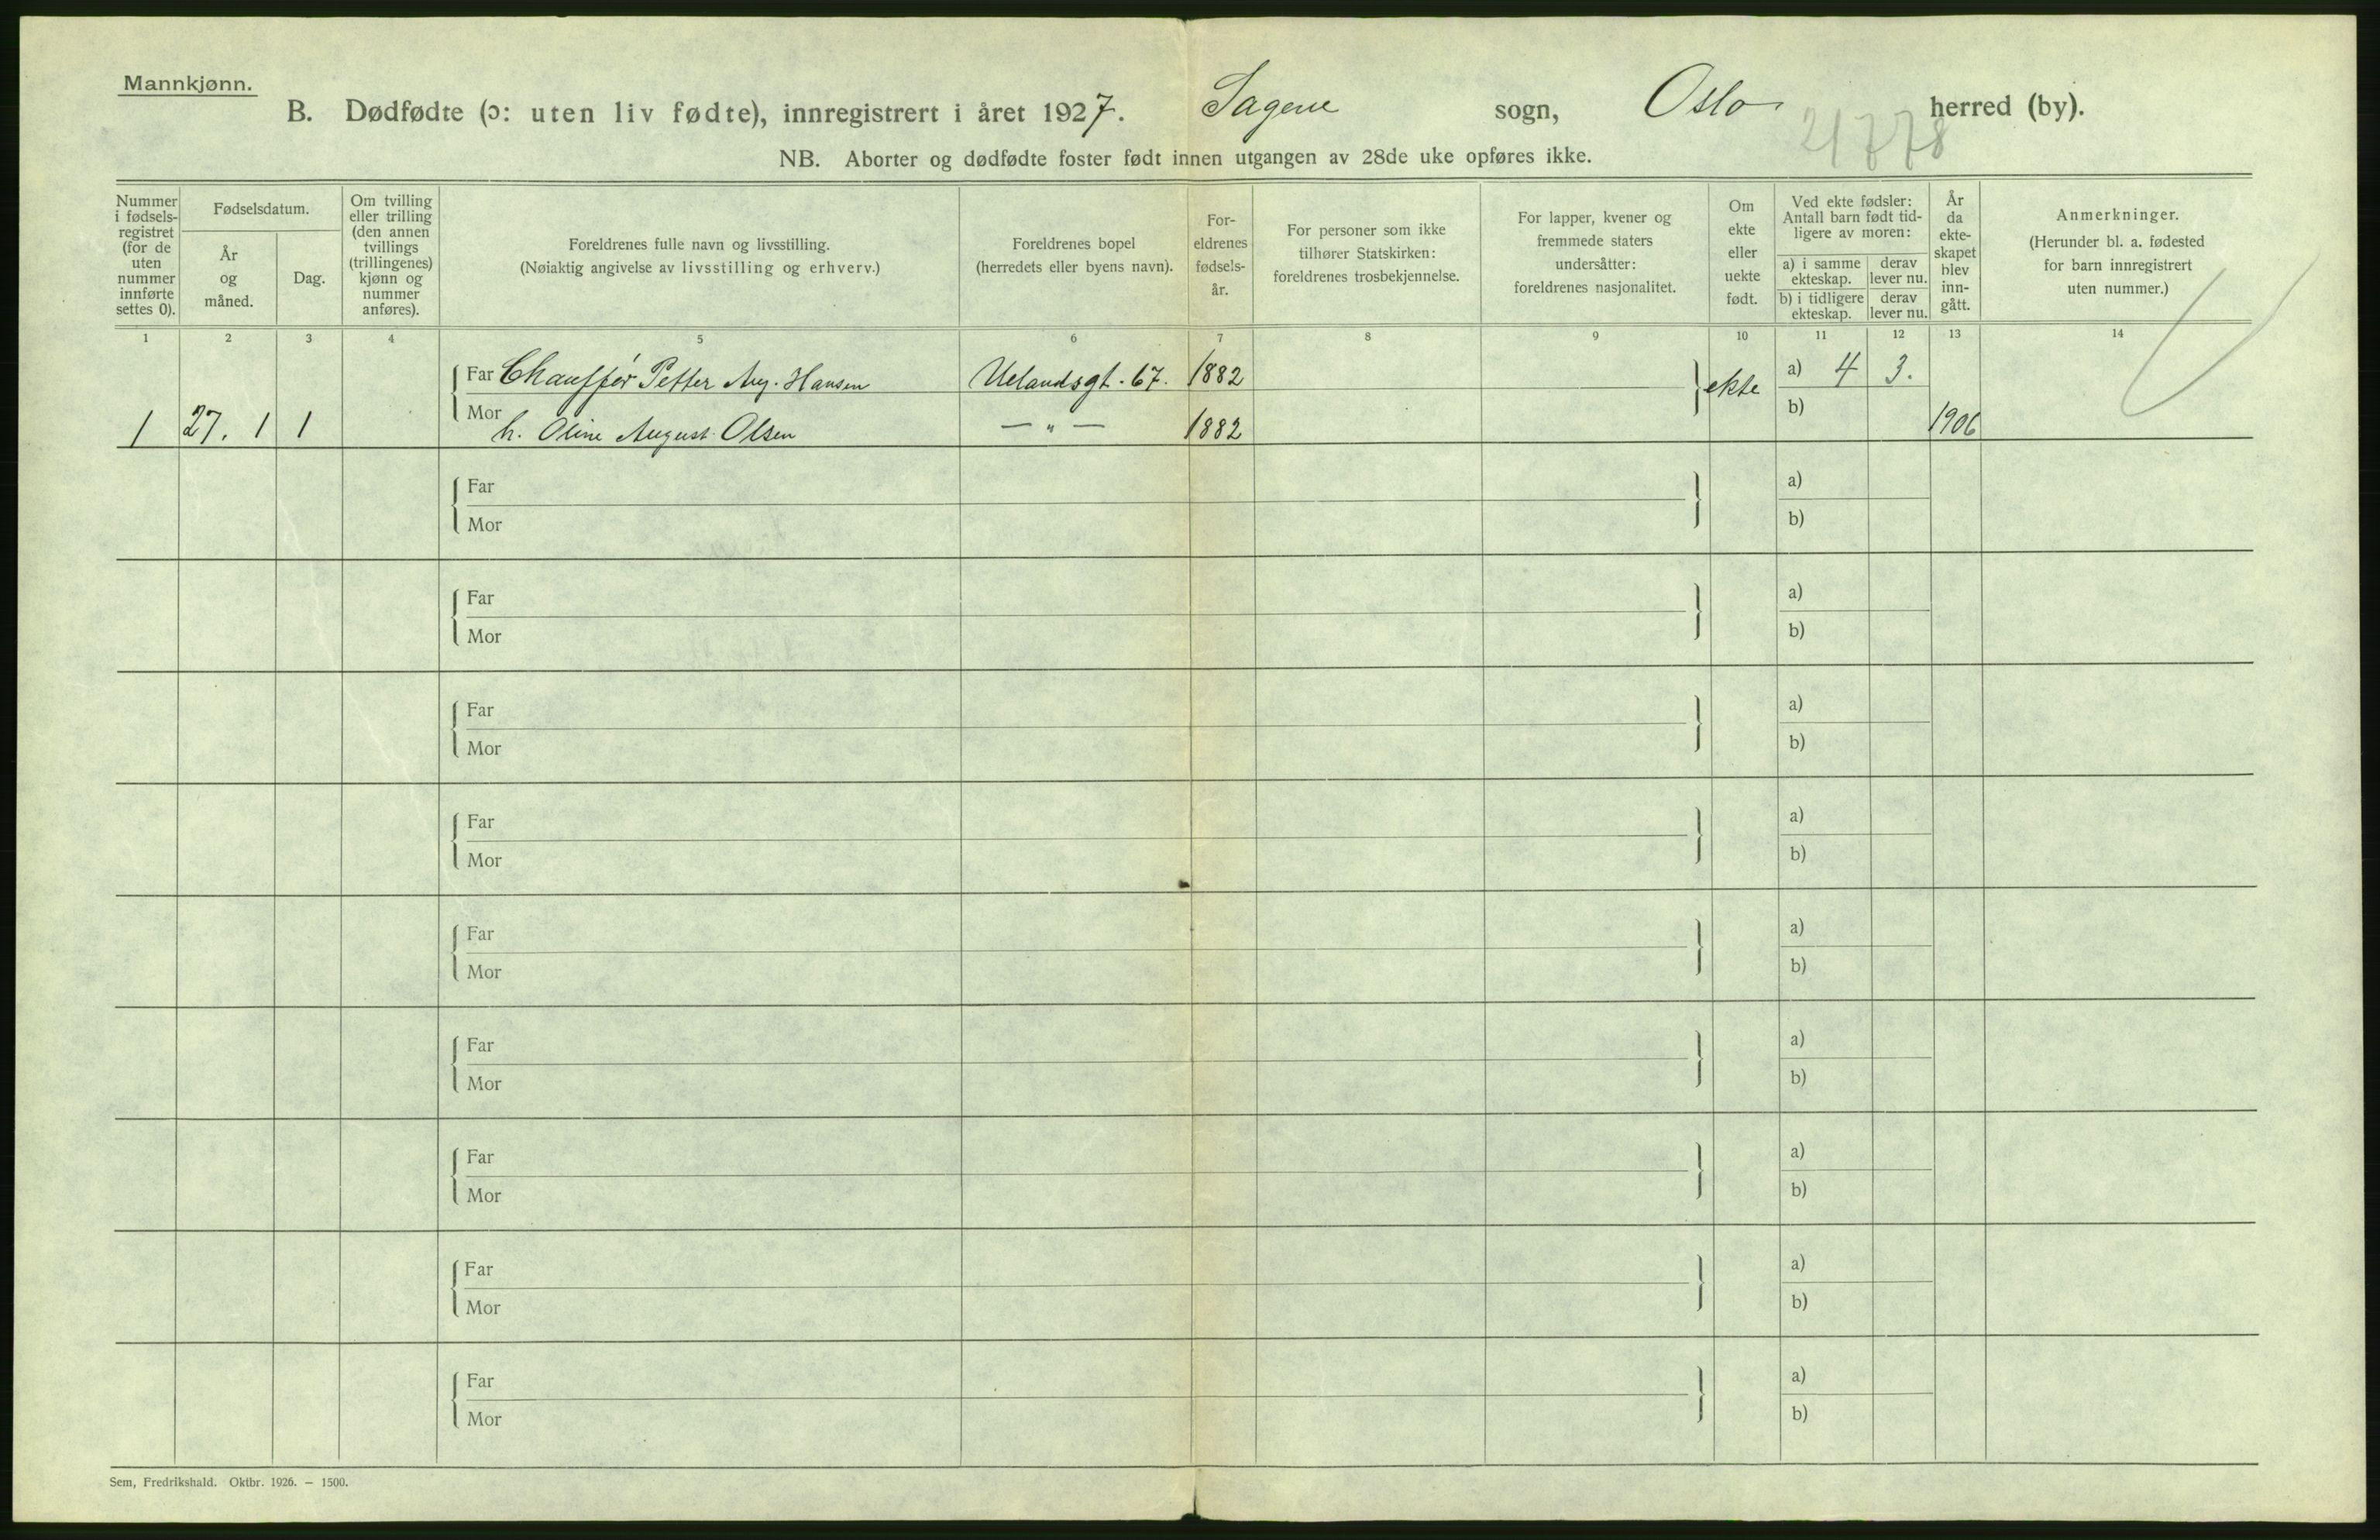 Mannkjønn.
B. Dødfødte (ɔ: uten liv fødte), innregistrert i året 1927. Sagene sogn, Oslo herred (by).
21778
NB. Aborter og dødfødte foster født innen utgangen av 28de uke opføres ikke.
Nummer
i fødsels-
registret
(for de
uten
nummer
innførte
settes 0).
Fødselsdatum.
År
og
måned.
Dag.
Om tvilling
eller trilling
(den annen
tvillings
(trillingenes)
kjønn og
nummer
anføres).
Foreldrenes fulle navn og livsstilling.
(Nøiaktig angivelse av livsstilling og erhverv.)
Foreldrenes bopel
(herredets eller byens navn).
For-
eldrenes
fødsels-
år.
For personer som ikke
tilhører Statskirken:
foreldrenes trosbekjennelse.
For lapper, kvener og
fremmede staters
undersåtter:
foreldrenes nasjonalitet.
Om
ekte
eller
uekte
født.
Ved ekte fødsler:
Antall barn født tid-
ligere av moren:
a) i samme
ekteskap.
derav
lever nu.
b) i tidligere
ekteskap.
derav
lever nu.
År
da
ekte-
skapet
blev
inn-
gått.
Anmerkninger.
(Herunder bl. a. fødested
for barn innregistrert
uten nummer.)
1 2 3 4 5 6 7 8 9 10 11 12 13 14
Far Chauffør Petter Aug. Hansen Uelandsgt. 67. 1882 ekte a) 4 3.
1 27. 1 1 Mor h. Oline August Olsen — " — 1882 b) 1906
Far a)
Mor b)
Far a)
Mor b)
Far a)
Mor b)
Far a)
Mor b)
Far a)
Mor b)
Far a)
Mor b)
Far a)
Mor b)
Far a)
Mor b)
Far a)
Mor b)
Sem, Fredrikshald. Oktbr. 1926. — 1500.